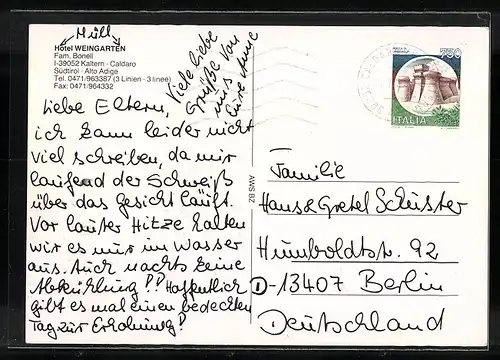 Müll
Hotel WEINGARTEN
Fam. Bonell
I-39052 Kaltern - Caldaro
Südtirol - Alto Adige
Tel. 0471/963387 (3 Linien - 3 linee)
Fax: 0471/964332
Liebe Eltern,
ich kann leider nicht
viel schreiben, da mir
laufend der Schweiß
über das Gesicht läuft.
Vor lauter Hitze halten
wir es nur im Wasser
aus. Auch nachts keine
Abkühlung!? Hoffentlich
gibt es mal einen bedeckten
Tag zur Erholung!
Viele liebe
Grüße von
uns
eure Anne
AWS BZ
750
ITALIA
Familie
Hans & Gretel Schuster
Humboldtstr. 92
D-13407 Berlin
Deutschland